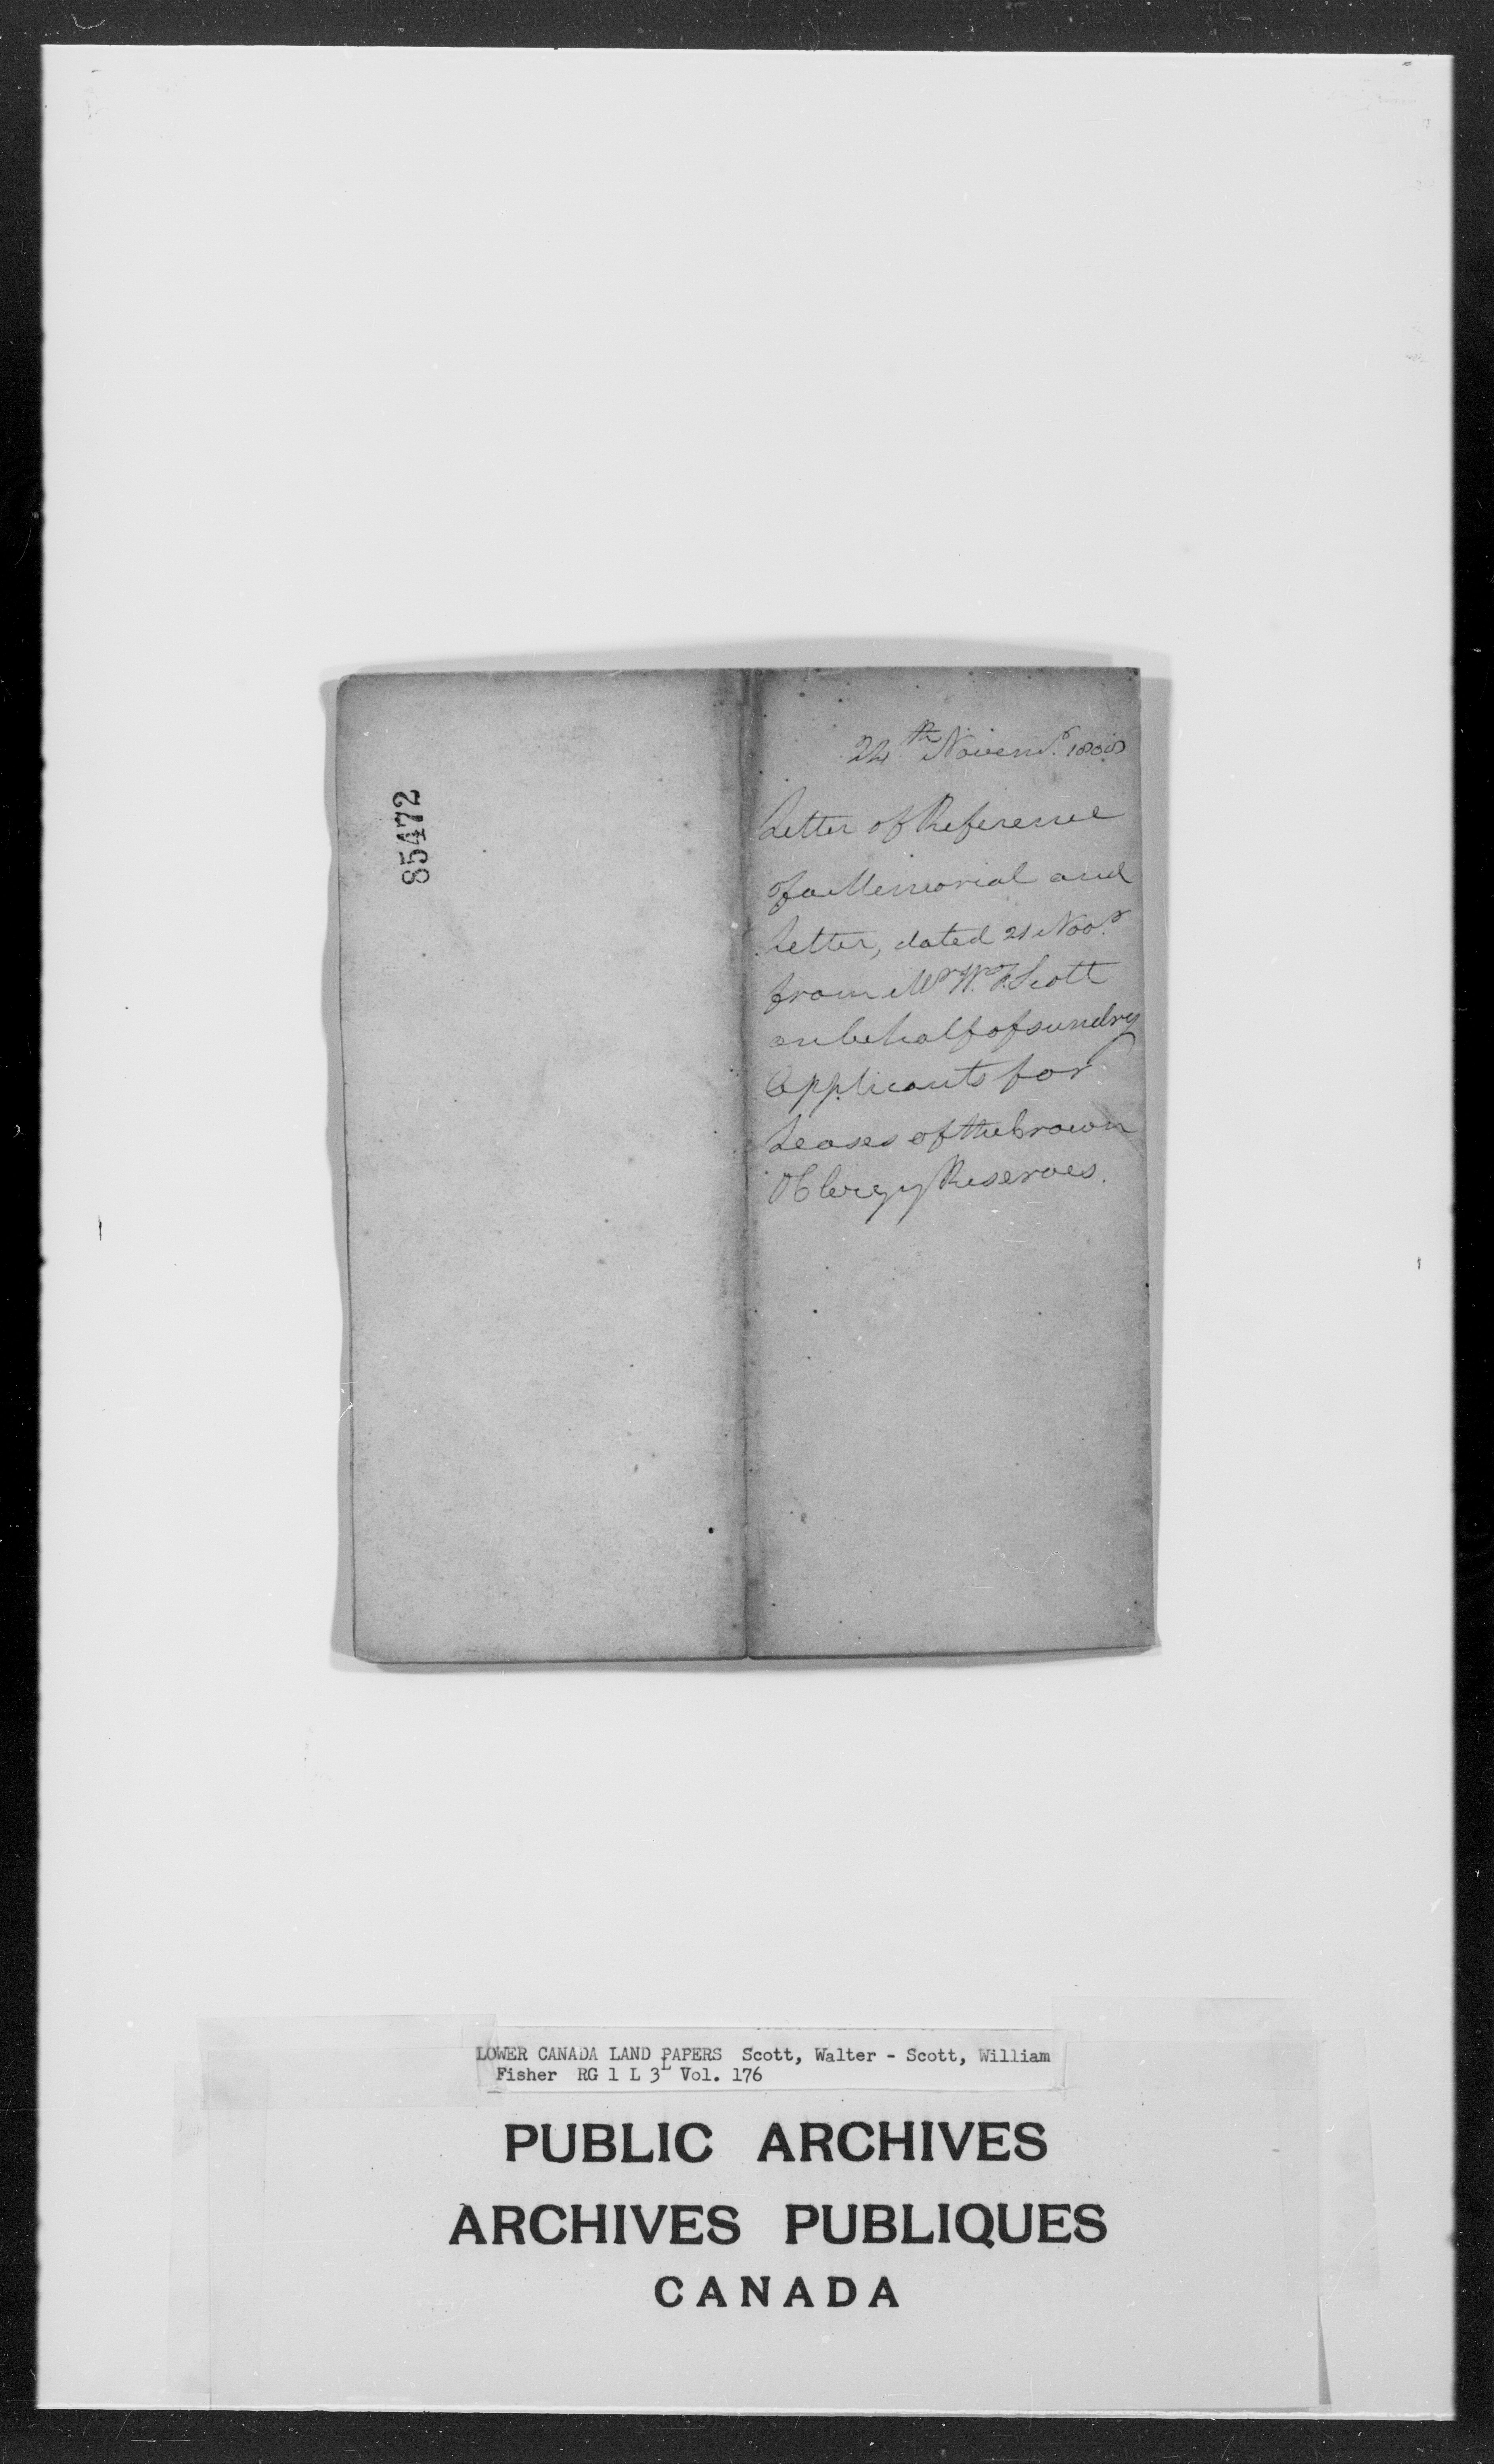 85472
24th Novemr.
Letter of Reference
of a Memorial and
Letter, dated 21 Novr.
from Mr W. F. Scott
on behalf of sundry
Applicants for
Leases of the Crown
& Clergy Reserves.
LOWER CANADA LAND PAPERS Scott, Walter - Scott, William
Fisher RG 1 L 3L Vol. 176
PUBLIC ARCHIVES
ARCHIVES PUBLIQUES
CANADA